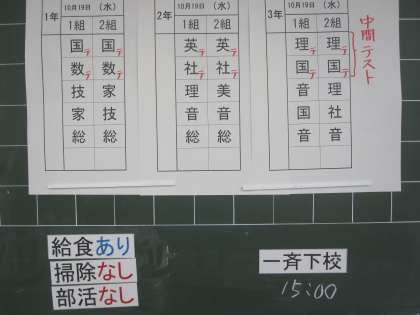 1年 10月19日 (水)
1組 2組
国テ 国テ
数テ 数テ
技 家
家 技
総 総
2年 10月19日 (水)
1組 2組
英テ 英テ
社テ 社テ
理 美
音 音
総 総
3年 10月19日 (水)
1組 2組
理テ 理テ
国テ 国テ
音 理
国 社
音 音
中間テスト
給食あり
掃除なし
部活なし
一斉下校
15:00